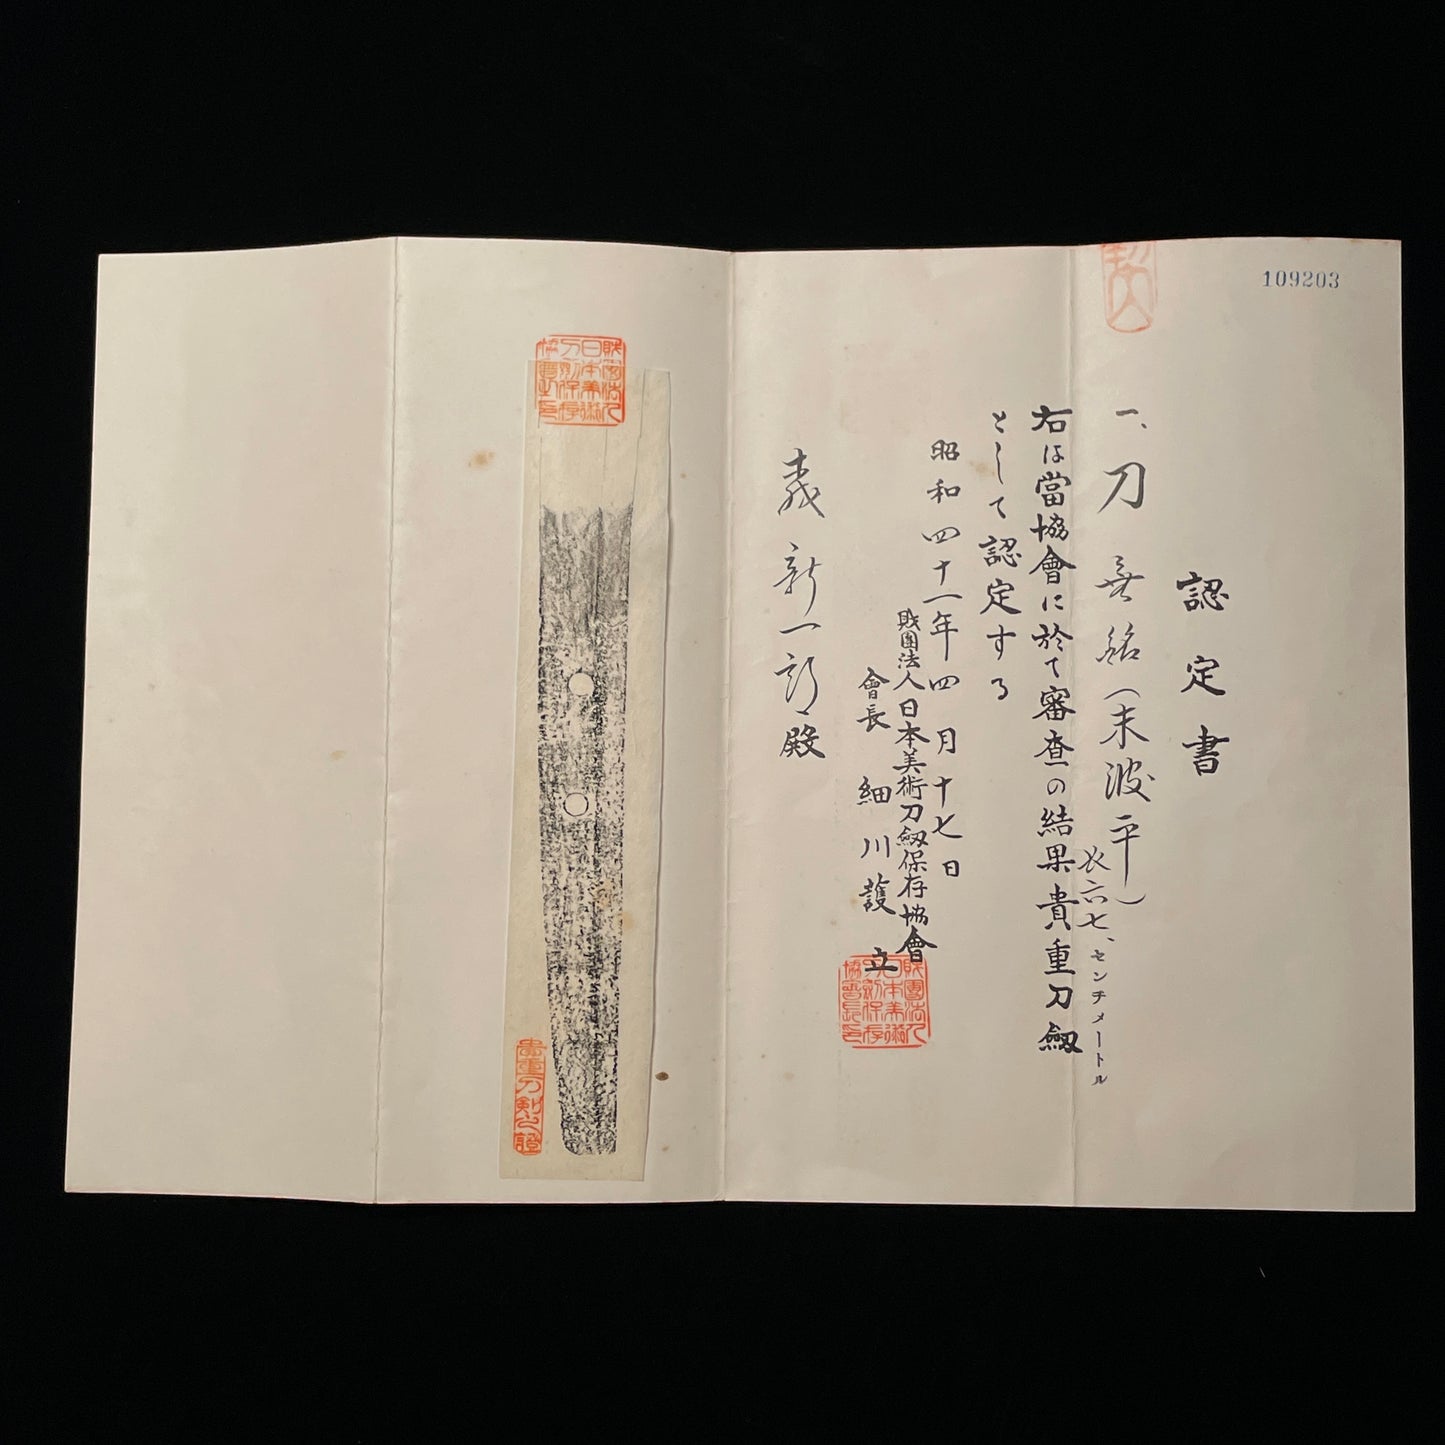 109203
認定書
一、刀 無銘(末波平)
長六七、センチメートル
右は當協會に於て審査の結果貴重刀劔
として認定する
昭和四十一年四月十七日
財團法人日本美術刀劔保存協會
會長 細川護立
義新一郎殿
財團法人日本美術刀劍保存協會長印
財團法人日本美術刀劍保存協會之印
貴重刀剣之證